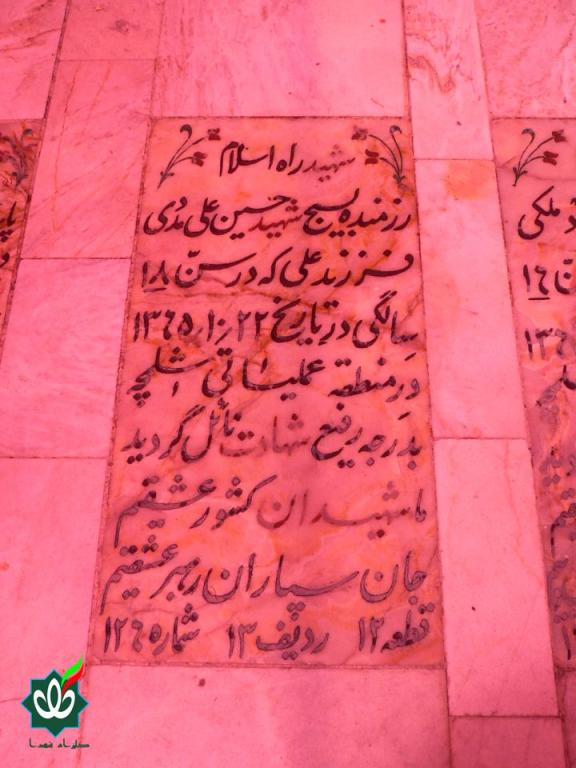 شهید راه اسلام
رزمنده بسیج شهید حسین علی مدّی
فرزند علی که در سنّ ۱۸
سالگی در تاریخ ۱۳۶۵،۱۰،۲۲
در منطقه عملیاتی شلمچه
بدرجه رفیع شهادت نائل گردید
ما شهیدان کشور عشقیم
جان سپاران رهبر عشقیم
قطعه ۱۲ ردیف ۱۳ شماره ۱۲۶
ملکی
۱۶
گلزار شهدا